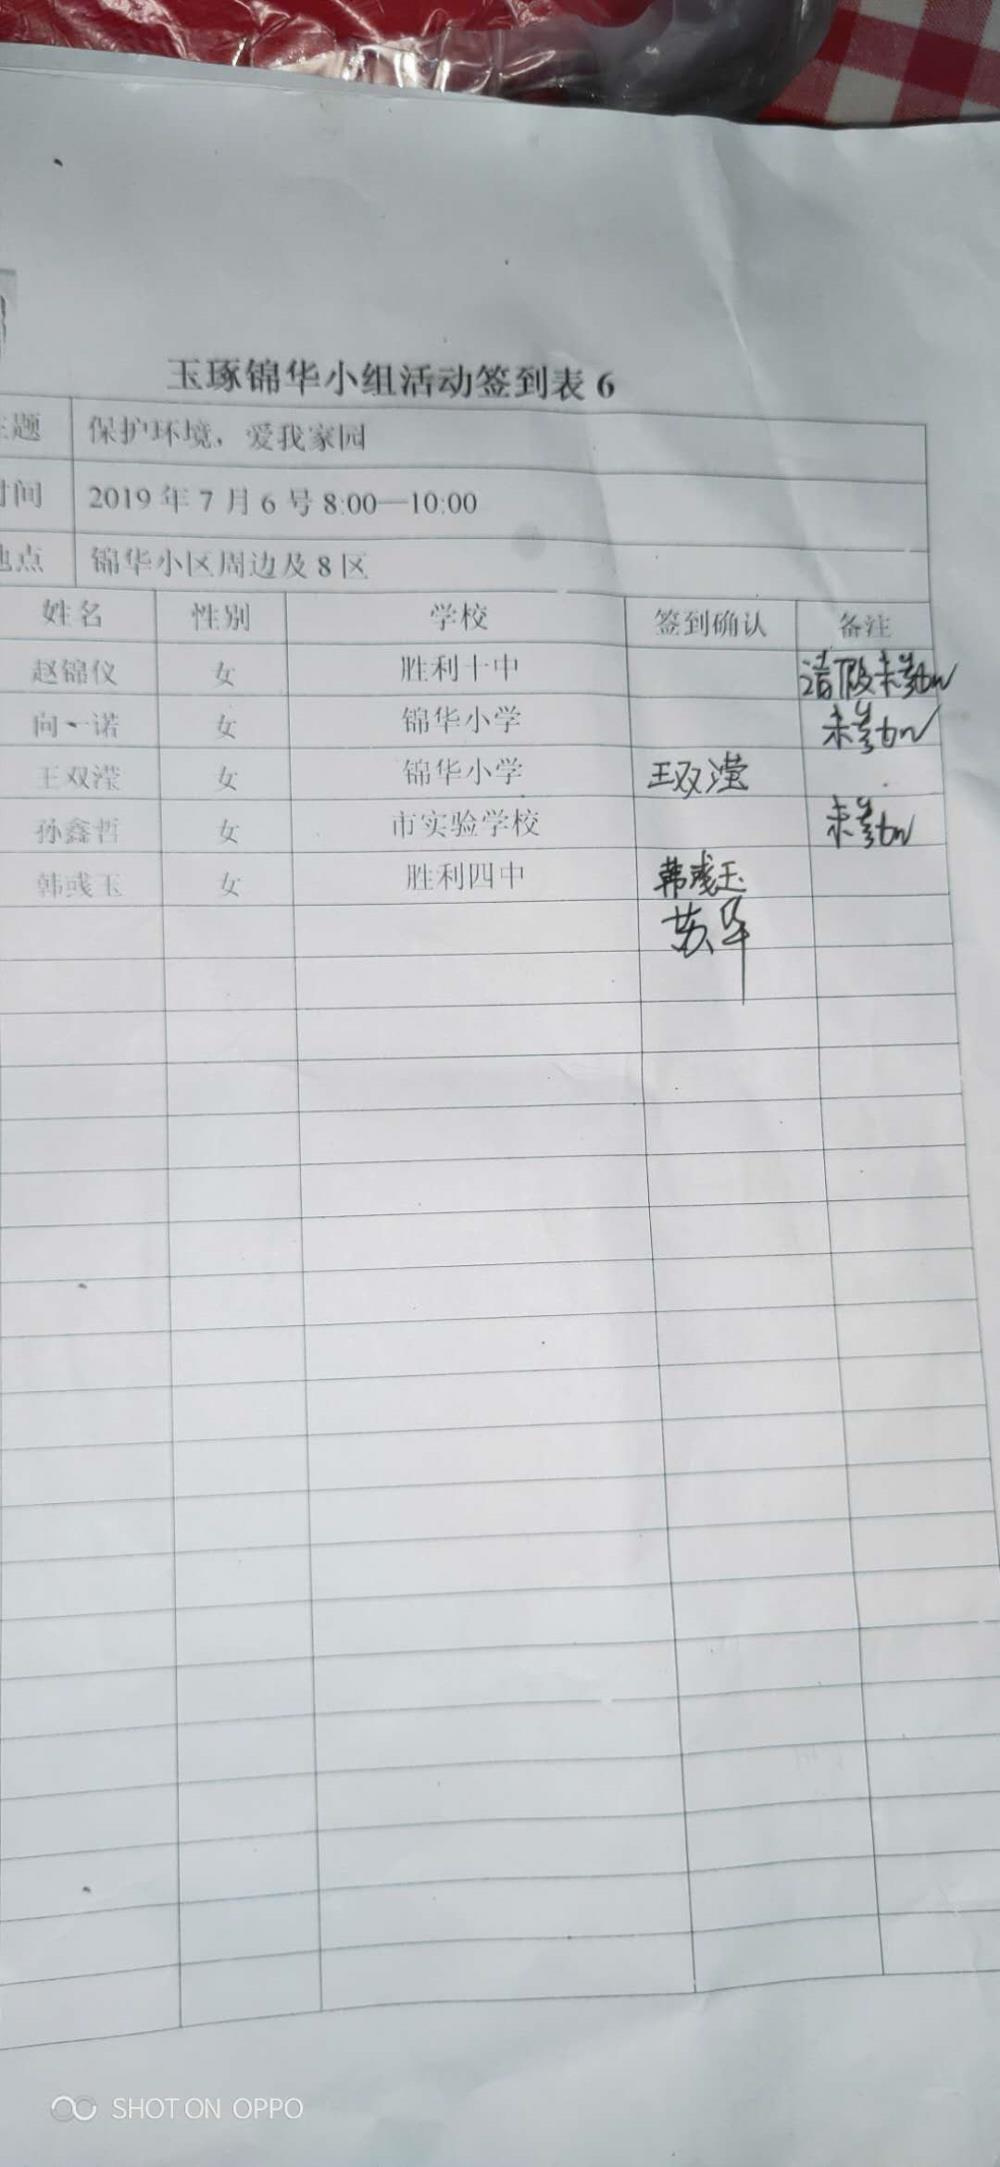 玉琢锦华小组活动签到表 6
主题 保护环境，爱我家园
时间 2019 年 7 月 6 号 8:00—10:00
地点 锦华小区周边及 8 区
姓名 性别 学校 签到确认 备注
赵锦仪 女 胜利十中 请假未参加
向一诺 女 锦华小学 未参加
王双滢 女 锦华小学 王双滢
孙鑫哲 女 市实验学校 未参加
韩彧玉 女 胜利四中 韩彧玉
苏华
SHOT ON OPPO